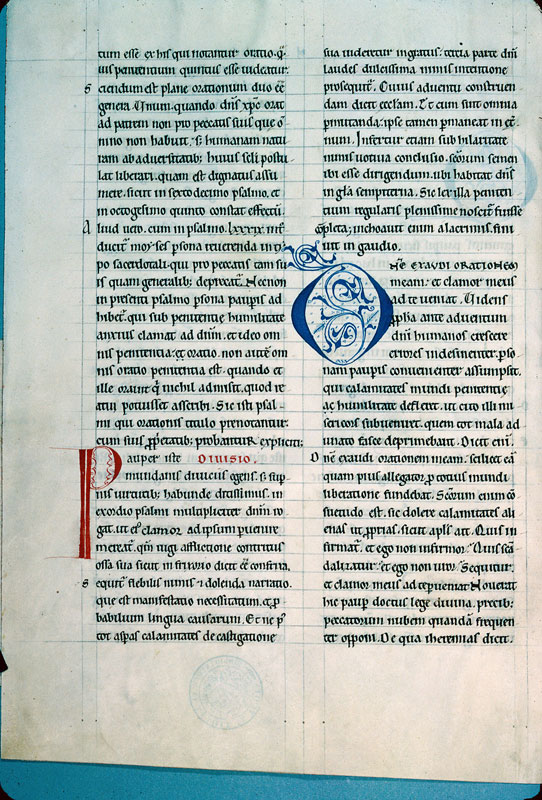 tum esse ex his qui notantur oratio. qͣ
uis penitentum quintus esse uideatur.
Sciendum est plane orationum duo eē
genera. Unum. quando dn̄s xp̄c orat
ad patrem non pro peccatis suis que o
mnino non habuit. s; humanam natu
ram ab aduersitatib; huius scłi postu
lat liberari. quam est dignatus assu
mere. sicut in sexto decimo psalmo. et
in octogesimo quinto constat effectū.
Aliud uero. cum in psalmo. lxxxix. int̄
ducit̄ moyses p̱sona reuerenda in ti
po sacerdotali. qui pro peccatis tam su
is quam generalib; deprecat̄. Necnon
in presenti psalmo p̱sona paup̱is ad
hibet̄. qui sub penitentię humilitate
anxius clamat ad dn̄m. et ideo om
nis penitentia. et oratio. non autē om
nis oratio penitentia est. quando et
ille orauit q̇ nichil admisit. quod re
atui potuisset asscribi. Sic isti psal
mi qui orationis titulo prenotantur.
cum suis p̱p̱etatib; probantur expliciti.
Pauper iste DIUISIO.
mundanis diuiciis egens. s; sup̱
nis uirtutib; habunde ditissimus. in
exordio psalmi multipliciter dn̄m ro
gat. ut ei᷒ clamor ad ipsum p̱uenire
mereat̄. qm̄ iugi afflictione contritus
ossa sua sicut in frixorio dicit eē confrixa.
Sequit̄ flebilis nimis ⁊ dolenda narratio.
que est manifestatio necessitatum. et p̱
babilium lingua causarum. Et ne p᷒
tot asp̱as calamitates de castigatione
sua uideretur ingratus. tercia parte dn̄i
laudes dulcissima nimis intentione
prosequit̄. Cuius aduentu construen
dam dicit ecct̄am. Et cum sint omnia
p̱mutanda. ipse tamen p̱maneat in et̄
num. Infertur etiam sub hilaritate
nimis uotiua conclusio. sc̄orum semen
ibi esse dirigendum. ubi habitat dn̄s
in gła sempiterna. Sic lex illa peniten
tium regularis plenissime noscit̄ fuisse
cōpleta. inchoauit enim a lacrimis. fini
uit in gaudio.
DŃE EXAUDI ORATIONEM
meam. et clamor meus
ad te ueniat. Uidens
p̱pha ante aduentum
dn̄i humanos crescere
errores indesinenter. p̱so
nam paup̱is conuenienter assumpsit.
qui calamitates mundi penitentię
ac humilitate defleret. ut cito illi mi
sericors subueniret. quem tot mala ad
unato fasce deprimebant. Dicit eni.
Dn̄e exaudi orationem meam. scilicet eā
quam pius allegator. p̱ totius mundi
liberatione fundebat. Sc̄orum enim cō
suetudo est. sic dolere calamitates ali
enas ut p̱prias. sicut ap̄ls ait. Quis in
firmat̄. et ego non infirmor. Quis scā
dalizatur. et ego non uror. Sequitur.
et clamor meus ad te p̱ueniat. Nouerat
hic paup̱ doctus lege diuina. precib;
peccatorum nubem quandā frequen
ter opponi. De qua iheremias dicit.